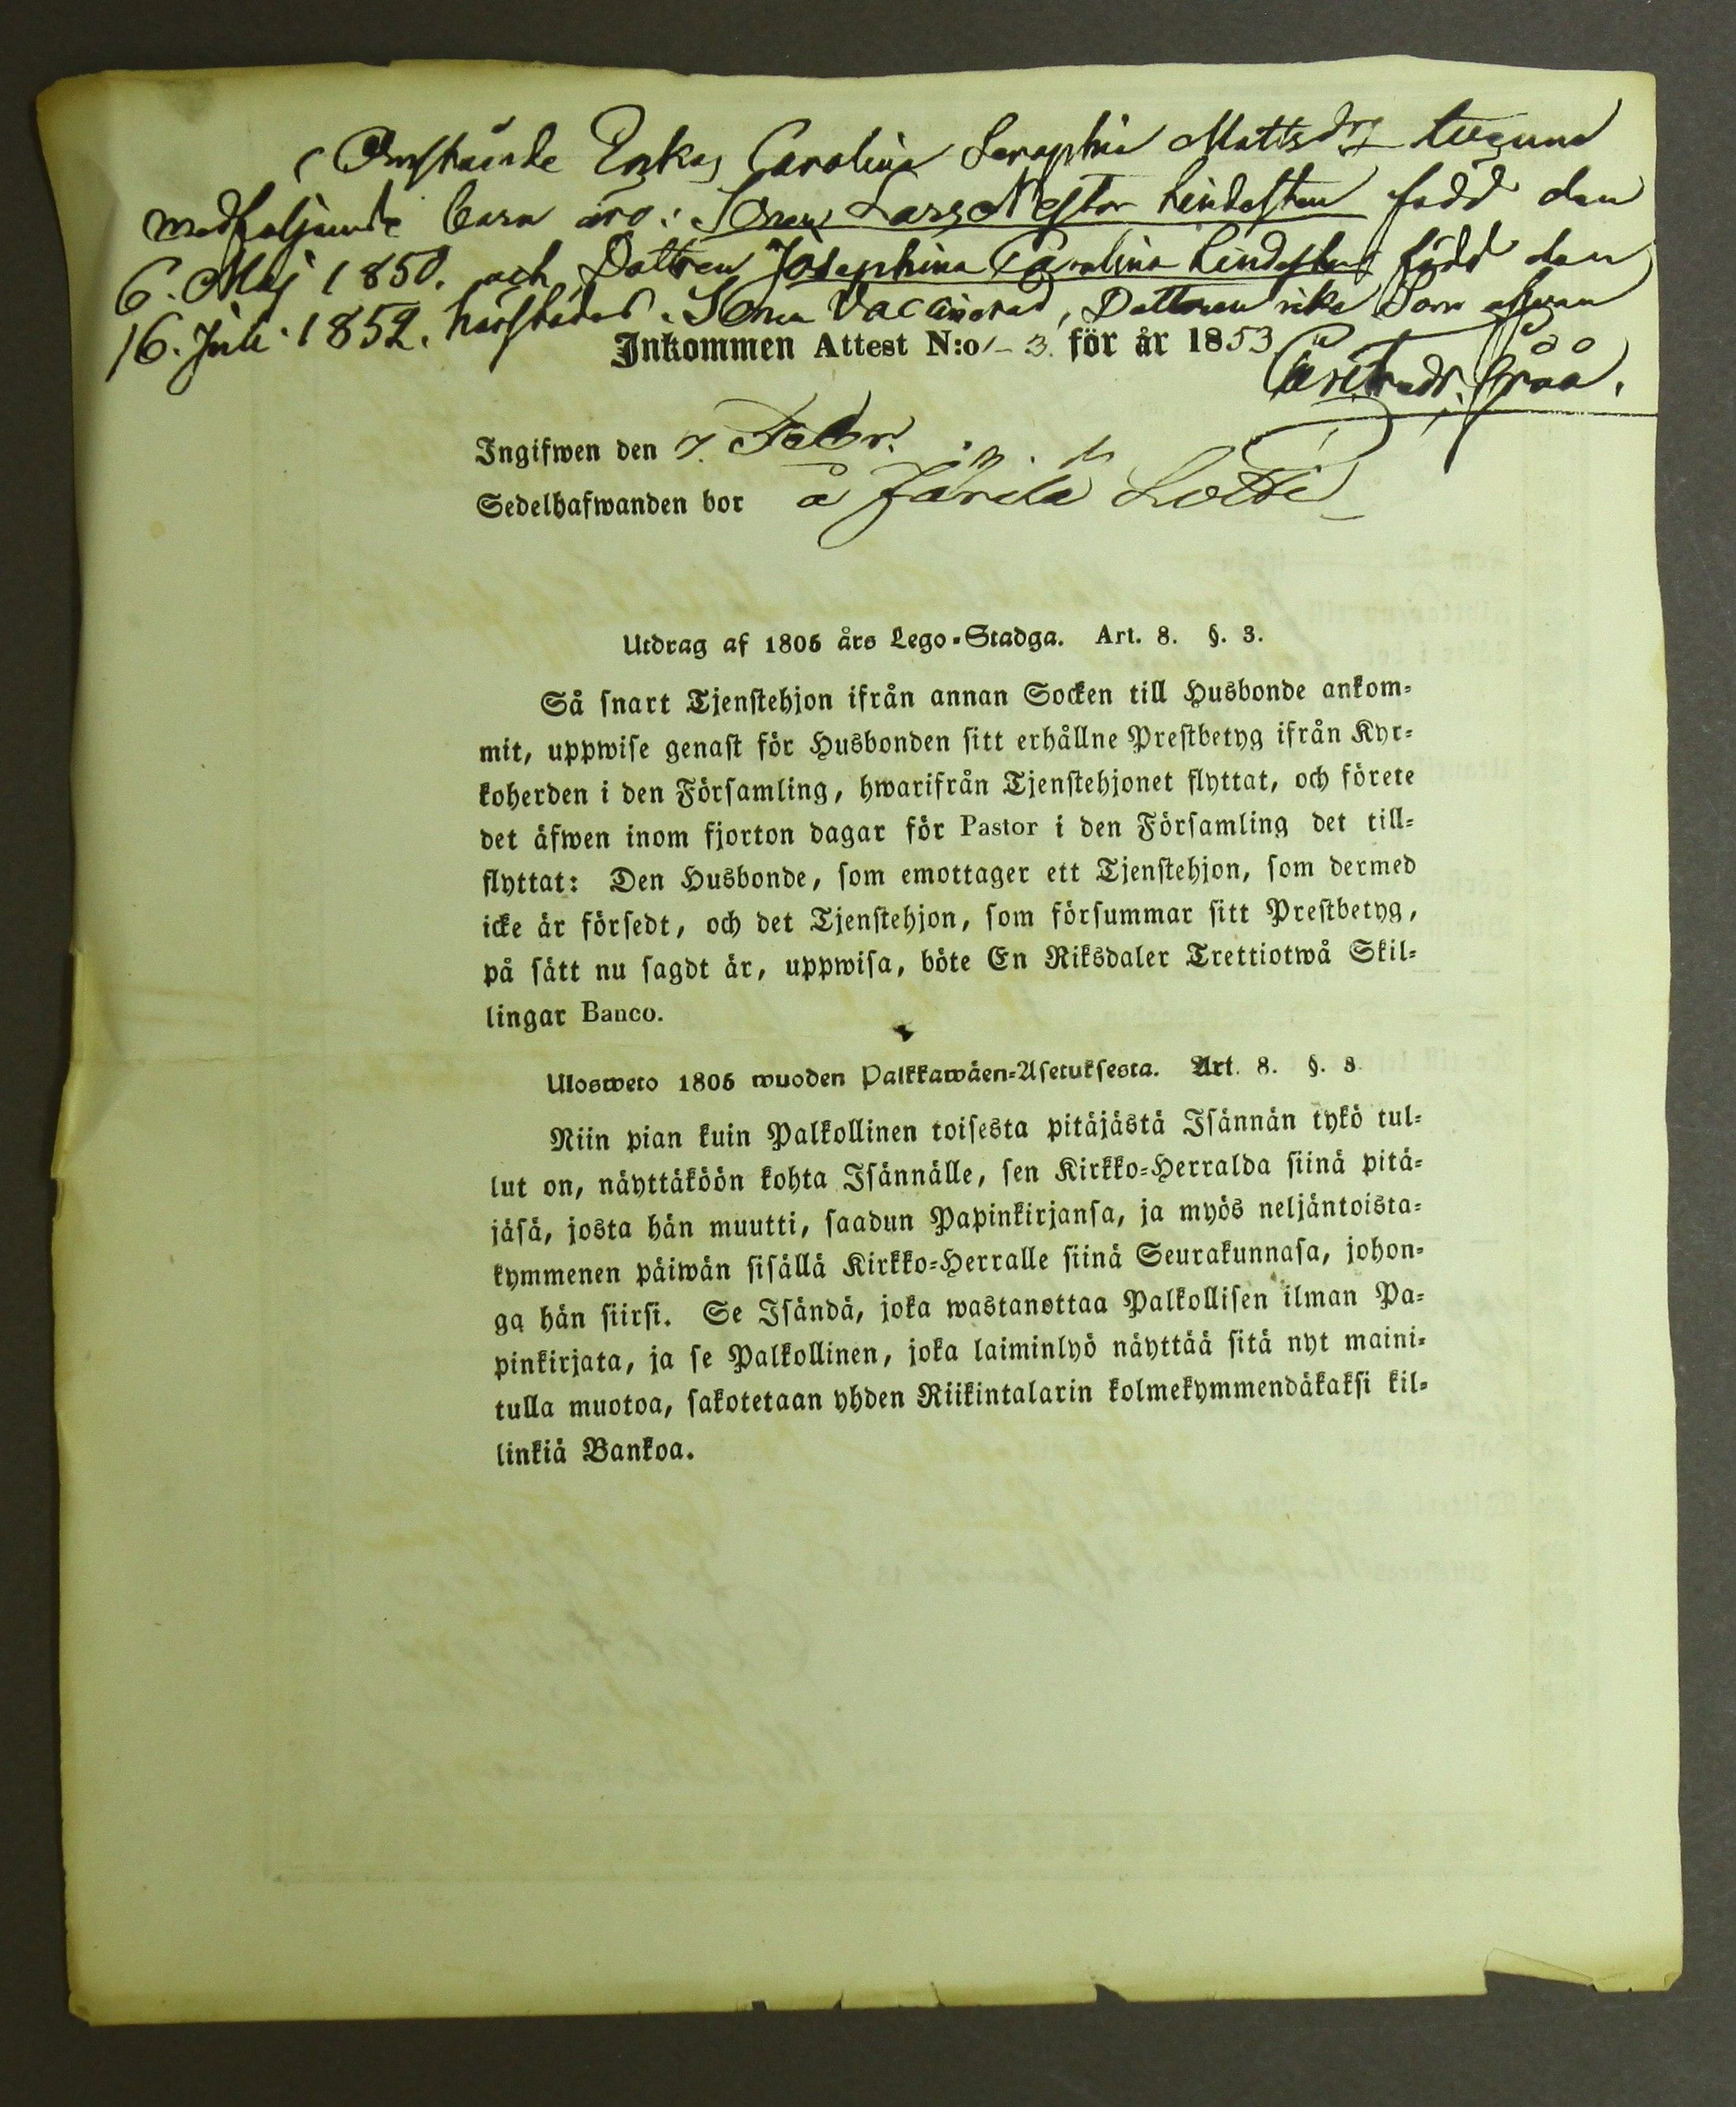 Omstående Enkas Carolina Seraphia Mattsdrs
medföljande barn äro: Sonen Lars Nestor Lindesten född den
6. Maj 1850. och Dottren Josephina Carolina Lindesten född den
16. Juli 1852. härstädes. Sonen Vaccinerad, Dottren icke Som ofvan
Inkommen Attest N:o 1-3. för år 1853
Ingifwen den 7. Febr.
Sedelhafwanden bor å Lotti
Utdrag af 1805 års Lego-Stadga. Art. 8. §. 3.
Så snart Tjenstehjon ifrån annan Socken till Husbonde ankom-
mit, uppwise genast för Husbonden sitt erhållne Prestbetyg ifrån Kyr-
koherden i den Församling, hwarifrån Tjenstehjonet flyttat, och förete
det äfwen inom fjorton dagar för Pastor i den Församling det till-
flyttat: Den Husbonde, som emottager ett Tjenstehjon, som dermed
icke är försedt, och det Tjenstehjon, som försummar sitt Prestbetyg,
på sätt nu sagdt är, uppwisa, böte En Riksdaler Trettiotwå Skil-
lingar Banco.
Ulosweto 1805 wuoden Palkkawäen-Asetuksesta. Art. 8. §. 3.
Niin pian kuin Palkollinen toisesta pitäjästä Isännän tykö tul-
lut on, näyttäköön kohta Isännälle, sen Kirkko-Herralda siinä pitä-
jäsä, josta hän muutti, saadun Papinkirjansa, ja myös neljäntoista-
kymmenen päiwän sisällä Kirkko-Herralle siinä Seurakunnasa, johon-
ga hän siirsi. Se Isändä, joka wastanottaa Palkollisen ilman Pa-
pinkirjata, ja se Palkollinen, joka laiminlyö näyttää sitä nyt maini-
tulla muotoa, sakotetaan yhden Riikintalarin kolmekymmendäkaksi kil-
linkiä Bankoa.